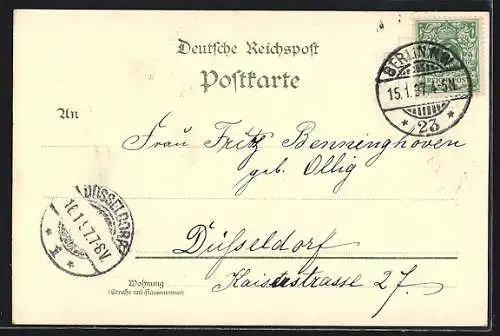 Deutsche Reichspost
Postkarte
BERLIN N.W.
15.1.97.4-5N.
* 23 *
An
Frau Fritz Benninghoven
geb. Ollig
DÜSSELDORF
16.1.97.7-8V.
* 1 *
Düsseldorf
Wohnung
(Straße und Hausnummer)
Kaiserstrasse 27.